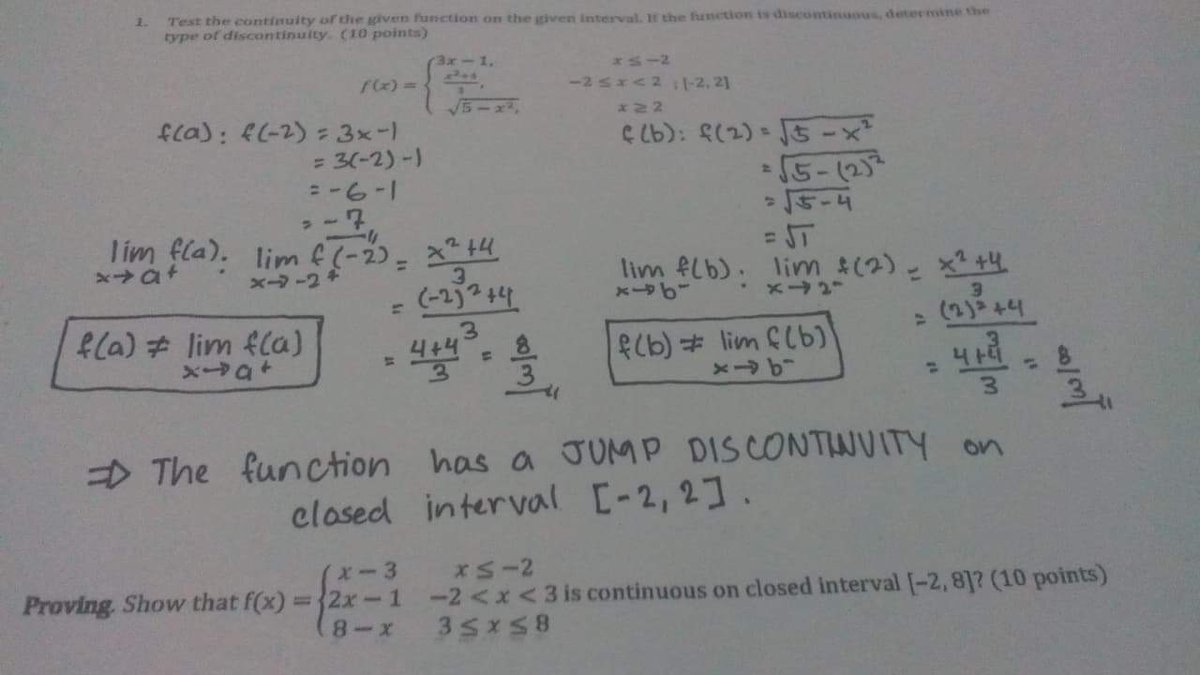 1. Test the continuity of the given function on the given interval. If the function is discontinuous, determine the
type of discontinuity. (10 points)
f(x) = { 3x − 1, x ≤ −2
x²+4/3, −2 ≤ x < 2 ; [−2, 2]
√5 − x², x ≥ 2
f(a): f(-2) = 3x-1
= 3(-2)-1
= -6-1
= -7
lim f(a): lim f(-2) = x²+4/3
x→a⁺ x→-2⁺
= (-2)²+4/3
= 4+4/3 = 8/3
f(a) ≠ lim f(a)
x→a⁺
f(b): f(2) = √5-x²
= √5-(2)²
= √5-4
= √1
lim f(b): lim f(2) = x²+4/3
x→b⁻ x→2⁻
= (2)²+4/3
= 4+4/3 = 8/3
f(b) ≠ lim f(b)
x→b⁻
⇒ The function has a JUMP DISCONTINUITY on
closed interval [-2, 2].
x − 3 x ≤ −2
Proving. Show that f(x) = { 2x − 1 −2 < x < 3 is continuous on closed interval [−2, 8]? (10 points)
8 − x 3 ≤ x ≤ 8